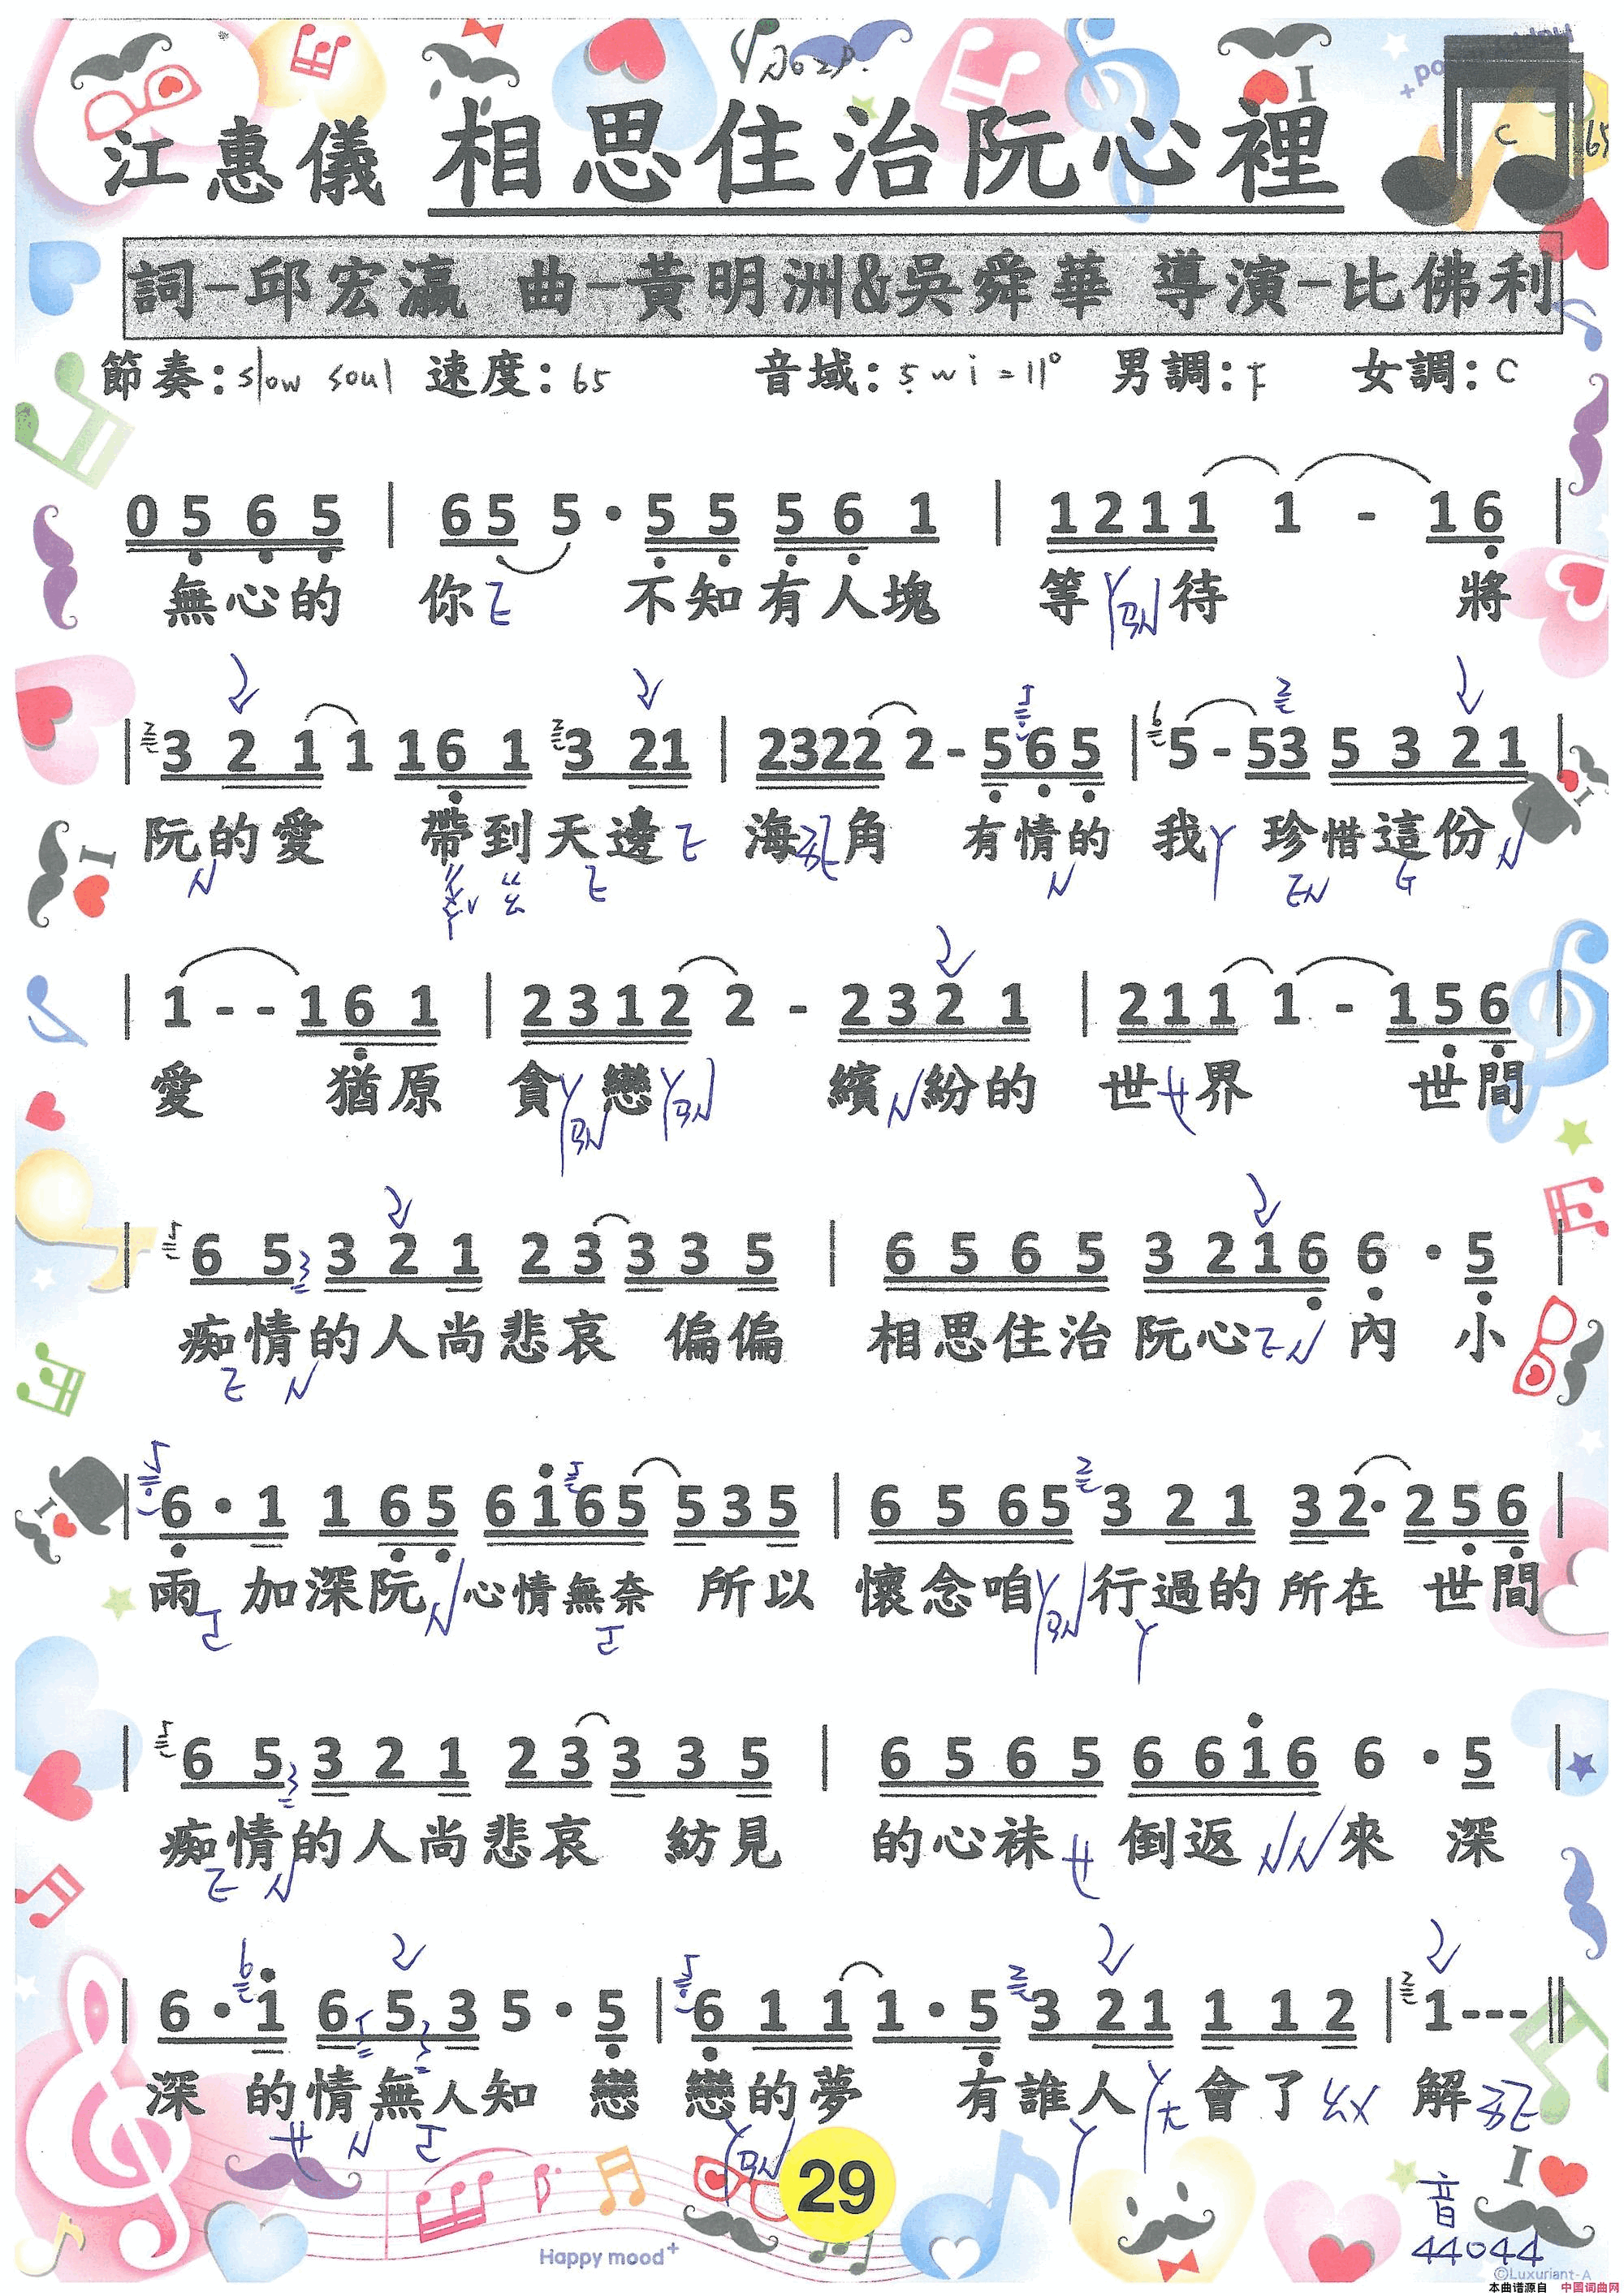 江惠儀 相思住治阮心裡
C 65
詞-邱宏瀛 曲-黃明洲&吳舜華 導演-比佛利
節奏:slow soul 速度:65 音域:5~i=11° 男調:F 女調:C
0 5 6 5 | 65 5·5 5 5 6 1 | 1211 1 - 16 |
無心的 你 不知有人塊 等 待 將
| 3 2 1 1 16 1 3 21 | 2322 2-565 | 5-53 5 3 2 1 |
阮的愛 帶到天邊 海 角 有情的 我 珍惜這份
| 1--16 1 | 2312 2 - 232 1 | 211 1 - 156 |
愛 猶原 貪 戀 繽 紛的 世 界 世間
| 6 5 3 2 1 2 3 3 3 5 | 6 5 6 5 3 2 1 6 6·5 |
痴情的人尚悲哀 偏偏 相思住治阮心 內 小
| 6·1 1 6 5 6i65 535 | 6 5 65 3 2 1 32·256 |
雨 加深阮 心情無奈 所以 懷念咱 行過的所在 世間
| 6 5 3 2 1 2 3 3 3 5 | 6 5 6 5 6 6 i 6 6·5 |
痴情的人尚悲哀 紡見 的心袜 倒返 來 深
6·i 6 5 3 5·5 | 6 1 1 1·5 3 21 1 1 2 | 1--- ‖
深 的情無人知 戀 戀的夢 有誰人 會了 解
29
I
Happy mood+
音
44044
©Luxuriant-A
本曲谱源自 中国词曲网